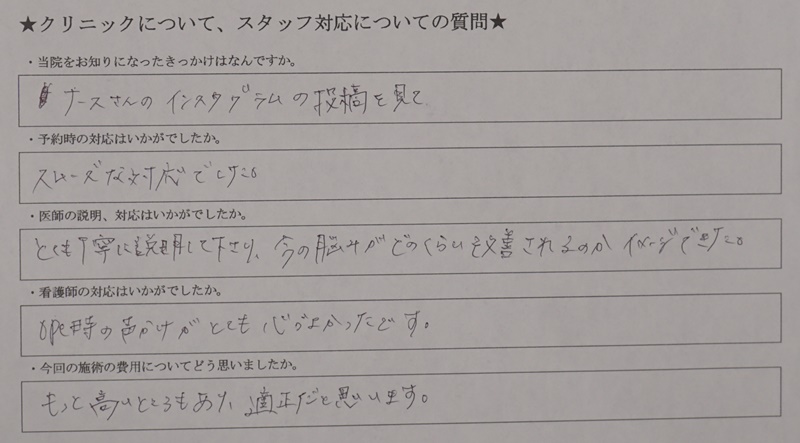 ★クリニックについて、スタッフ対応についての質問★
・当院をお知りになったきっかけはなんですか。
ナースさんのインスタグラムの投稿を見て
・予約時の対応はいかがでしたか。
スムーズな対応でした。
・医師の説明、対応はいかがでしたか。
とても丁寧に説明して下さり、今の脳みがどのくらい改善されるのかイメージできた。
・看護師の対応はいかがでしたか。
ope時の声かけがとても心づよかったです。
・今回の施術の費用についてどう思いましたか。
もっと高いところもあり、適正だと思います。